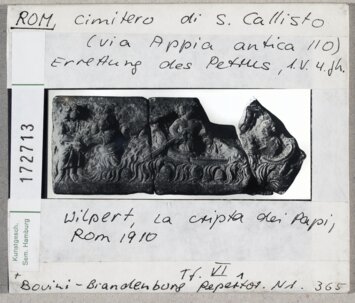 ROM, Cimitero di S. Callisto
(via Appia antica 110)
Errettung des Petrus, 1.V. 4.Jh.
172713
Kunstgesch.
Sem. Hamburg
Wilpert, La cripta dei Papi,
Rom 1910
Tf. VI
+ Bovini-Brandenburg Repertor. N1. 365